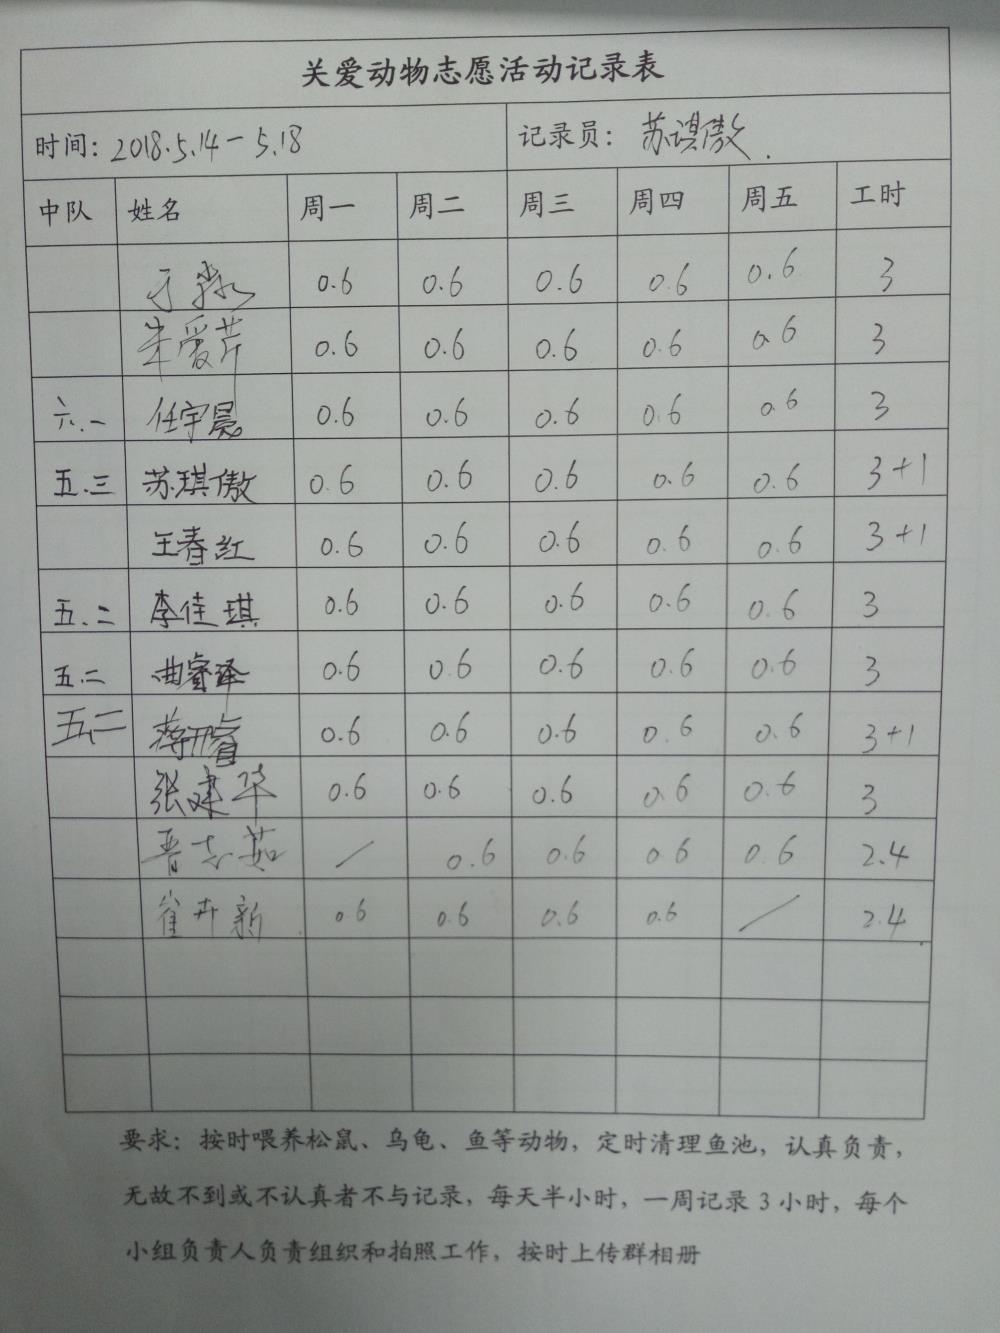 关爱动物志愿活动记录表
时间：2018.5.14－5.18 记录员：苏琪傲.
中队 姓名 周一 周二 周三 周四 周五 工时
于 0.6 0.6 0.6 0.6 0.6 3
朱爱芹 0.6 0.6 0.6 0.6 0.6 3
六.一 任宇晨 0.6 0.6 0.6 0.6 0.6 3
五.三 苏琪傲 0.6 0.6 0.6 0.6 0.6 3+1
王春红 0.6 0.6 0.6 0.6 0.6 3+1
五.二 李佳琪 0.6 0.6 0.6 0.6 0.6 3
五.二 曲睿泽 0.6 0.6 0.6 0.6 0.6 3
五.二 蒋开睿 0.6 0.6 0.6 0.6 0.6 3+1
张建华 0.6 0.6 0.6 0.6 0.6 3
晋志茹 / 0.6 0.6 0.6 0.6 2.4
崔卉新 0.6 0.6 0.6 0.6 / 2.4
要求：按时喂养松鼠、乌龟、鱼等动物，定时清理鱼池，认真负责，
无故不到或不认真者不与记录，每天半小时，一周记录3小时，每个
小组负责人负责组织和拍照工作，按时上传群相册